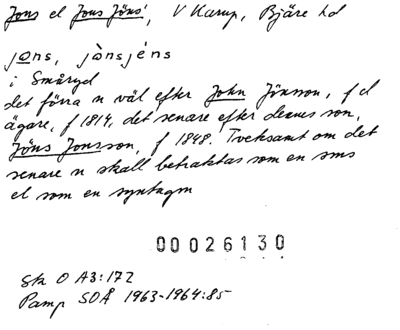 Jons el Jons Jöns', V Karup, Bjäre hd
jo̲ns, jònsjéns
i Småryd
det förra n väl efter John Jönsson, f d
ägare, f 1814, det senare efter dennes son,
Jöns Jonsson, f 1848. Tveksamt om det
senare n skall betraktas som en sms
el som en syntagm
00026130
Sk O A3:172
Pamp SOÅ 1963-1964:85